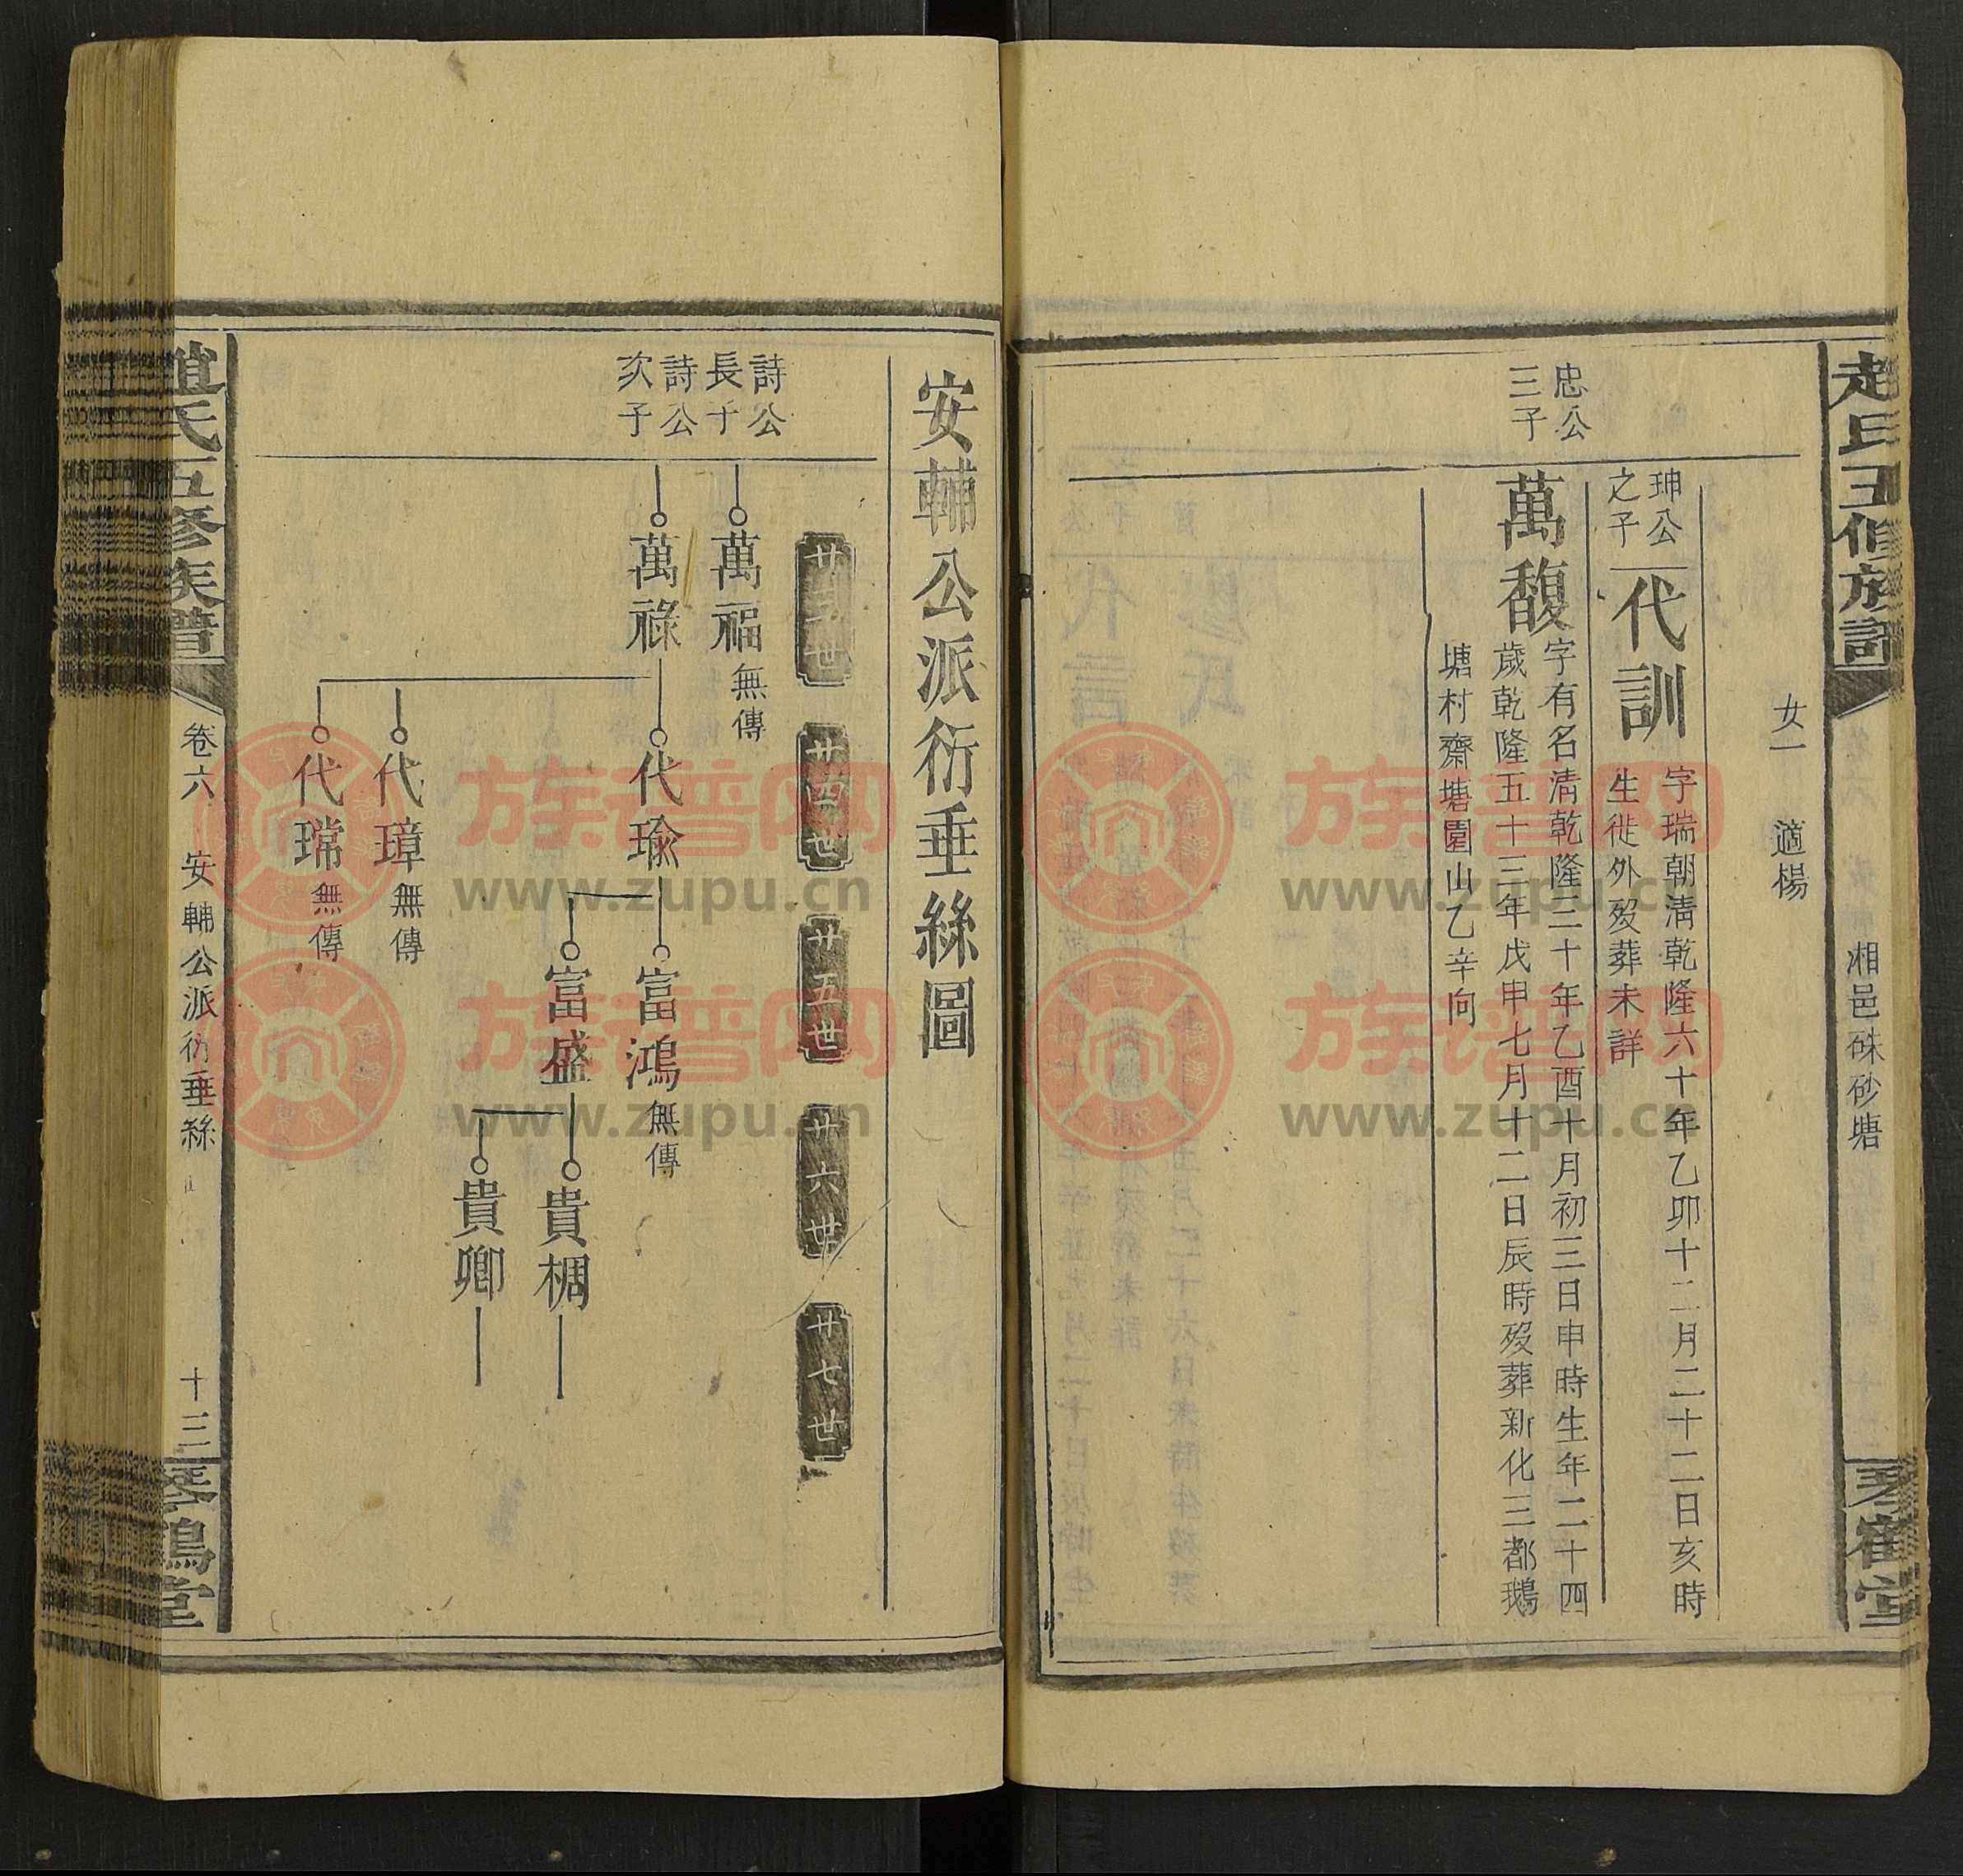 趙氏五修族譜
湘邑硃砂塘
琴鶴堂
女一 適楊
珅公
之子
代訓
字瑞朝清乾隆六十年乙卯十二月二十二日亥時
生徙外歿葬未詳
忠公
三子
萬馥
字有名清乾隆三十年乙酉十月初三日申時生年二十四
歲乾隆五十三年戊申七月十二日辰時歿葬新化三都鵝
塘村齋塘園山乙辛向
安輔公派衍垂絲圖
廿三世
廿四世
廿五世
廿六世
廿七世
詩公
長子
詩公
次子
萬福 無傳
萬祿
代瑜
代璋 無傳
代瑺 無傳
富鴻 無傳
富盛
貴椆
貴卿
趙氏五修族譜
卷六 安輔公派衍垂絲
十三
琴鶴堂
族谱网
www.zupu.cn
族谱网
www.zupu.cn
族谱网
www.zupu.cn
族谱网
www.zupu.cn